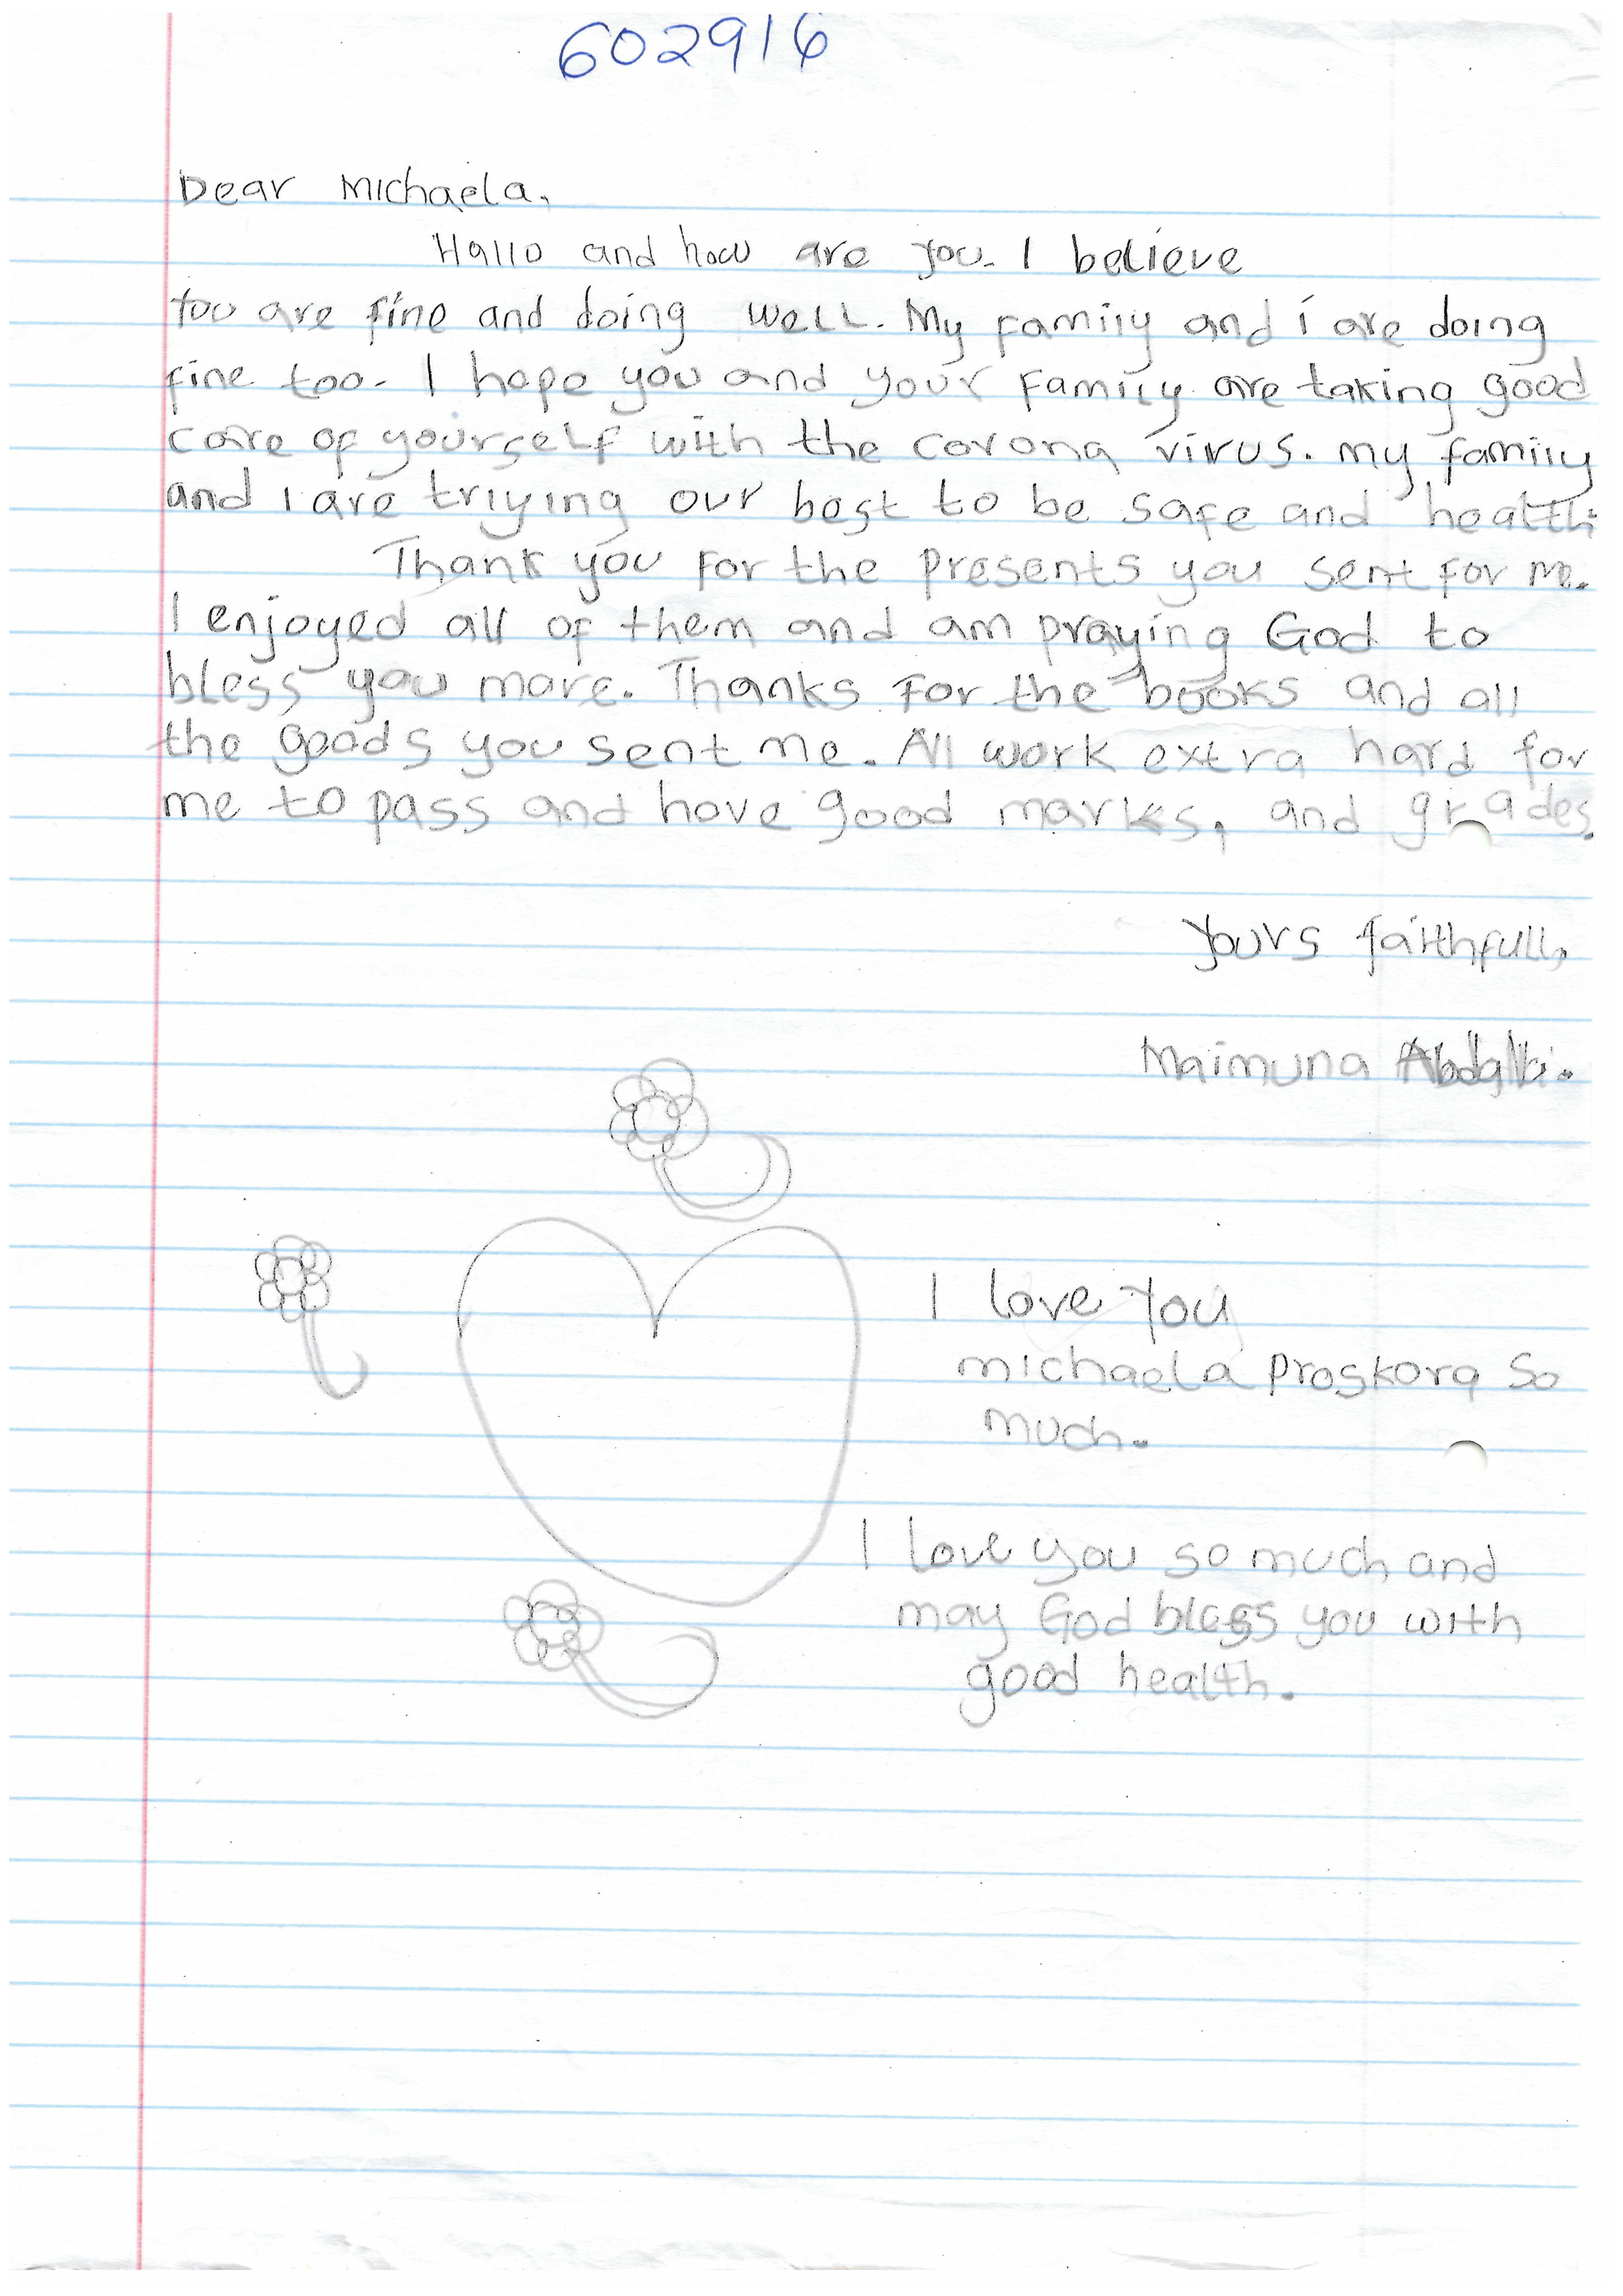 602916
Dear Michaela,
Hallo and how are you. I believe
you are fine and doing well. My family and i are doing
fine too. I hope you and your Family are taking good
care of yourself with the corona virus. my family
and i are triying our best to be safe and health
Thank you For the presents you sent for me.
I enjoyed all of them and am praying God to
bless you more. Thanks For the books and all
the goods you sent me. All work extra hard for
me to pass and have good marks, and grades.
Yours faithfull,
Maimuna
I love You
michaela Proskora So
much.
I love you so much and
may God bless you with
good health.